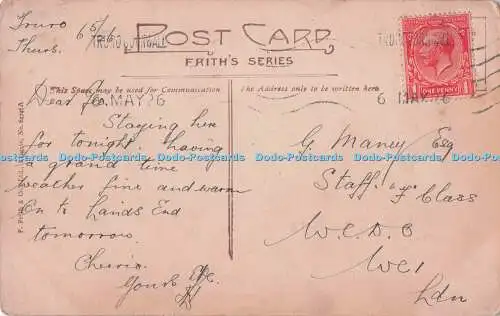 Truro 6/5/26
Thurs.
POST CARD
FRITH'S SERIES
This Space may be used for Communication
The Address only to be written here
TRURO CORNWALL
6 MAY 26
6 MAY 26
ONE PENNY
Staying here
for tonight. having
a grand time
weather fine and warm
On to Lands End
tomorrow.
Cheerio.
Yours Etc.
G. Maney Esq
Staff. "F" Class
W.C.D.O
WC1
Ldn
Dodo-Postcards Dodo-Postcards Dodo-Postcards Dodo-Postcards Dodo-Postcards